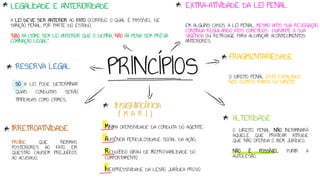 LEGALIDADE E ANTERIORIDADE
A LEI DEVE SER ANTERIOR AO FATO OCORRIDO O QUAL É PASSÍVEL DE
SANÇÃO PENAL POR PARTE DO ESTADO.
"NÃO HÁ CRIME SEM LEI ANTERIOR QUE O DEFINA. NÃO HÁ PENA SEM PRÉVIA
COMINAÇÃO LEGAL."
EXTRA-ATIVIDADE DA LEI PENAL
EM ALGUNS CASOS A LEI PENAL, MESMO APÓS SUA REVOGAÇÃO,
CONTINUA REGULANDO ATOS COMETIDOS DURANTE A SUA
VIGÊNCIA OU RETROAGE PARA ALCANÇAR ACONTECIMENTOS
ANTERIORES.
RESERVA LEGAL
SÓ A LEI PODE DETERMINAR
QUAIS CONDUTAS SERÃO
TIPIFICADAS COMO CRIMES.
PRINCÍPIOS
FRAGMENTARIEDADE
O DIREITO PENAL
IRRETROATIVIDADE
PROÍBE QUE NORMAS
POSTERIORES AO FATO EM
QUESTÃO CAUSEM PREJUÍZOS
AO ACUSADO.
INSIGNIFICÂNCIA
( M A R I )
MÍNIMA OFENSIVIDADE DA CONDUTA DO AGENTE.
AUSÊNCIA PERICULOSIDADE SOCIAL DA AÇÃO.
REDUZIDO GRAU DE REPROVABILIDADE DO
COMPORTAMENTO
INEXPRESSIVIDADE DA LESÃO JURÍDICA PROVO
ALTERIDADE
O DIREITO PENAL NÃO INCRIMINARÁ
AQUELE QUE PRATICAR ATITUDE
QUE NÃO OFENDA O BEM JURÍDICO.
NÃO É POSSÍVEL PUNIR A
AUTOLESÃO.